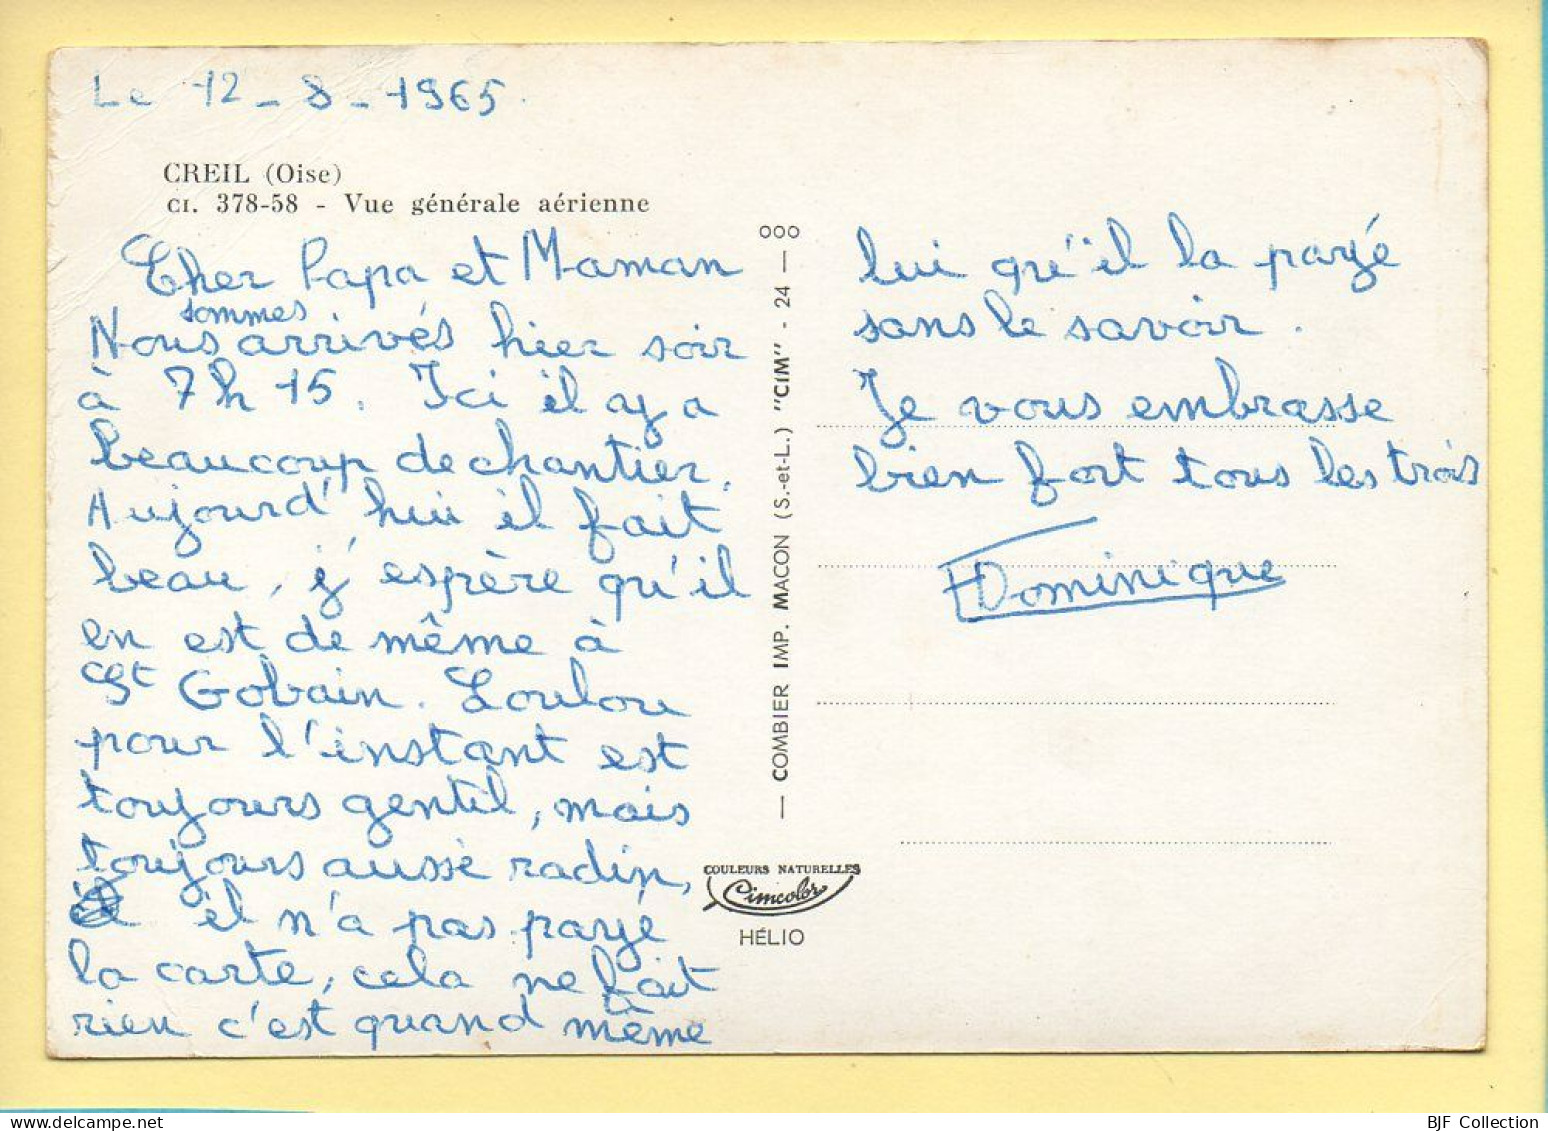 Le 12-8-1965.
CREIL (Oise)
CI. 378-58 - Vue générale aérienne
Cher Papa et Maman
sommes
Nous arrivés hier soir
à 7h 15. Ici il a y a
beaucoup de chantier.
Aujourd'hui il fait
beau, j'espère qu'il
en est de même à
St Gobain. Loulou
pour l'instant est
toujours gentil, mais
toujours aussi radin,
il n'a pas payé
la carte, cela ne fait
rien c'est quand même
lui qu'il la payé
sans le savoir.
Je vous embrasse
bien fort tous les trois
Dominique
COMBIER IMP. MACON (S.-et-L.) "CIM" - 24 -
COULEURS NATURELLES
Cimcolor
HÉLIO
BJF Collection